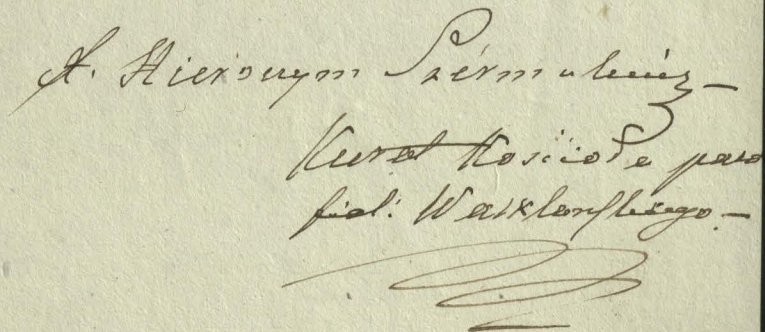 X. Hieronym Szérmukiewicz –
Kurat Kościoła paro
fial: Wawklenskiego –